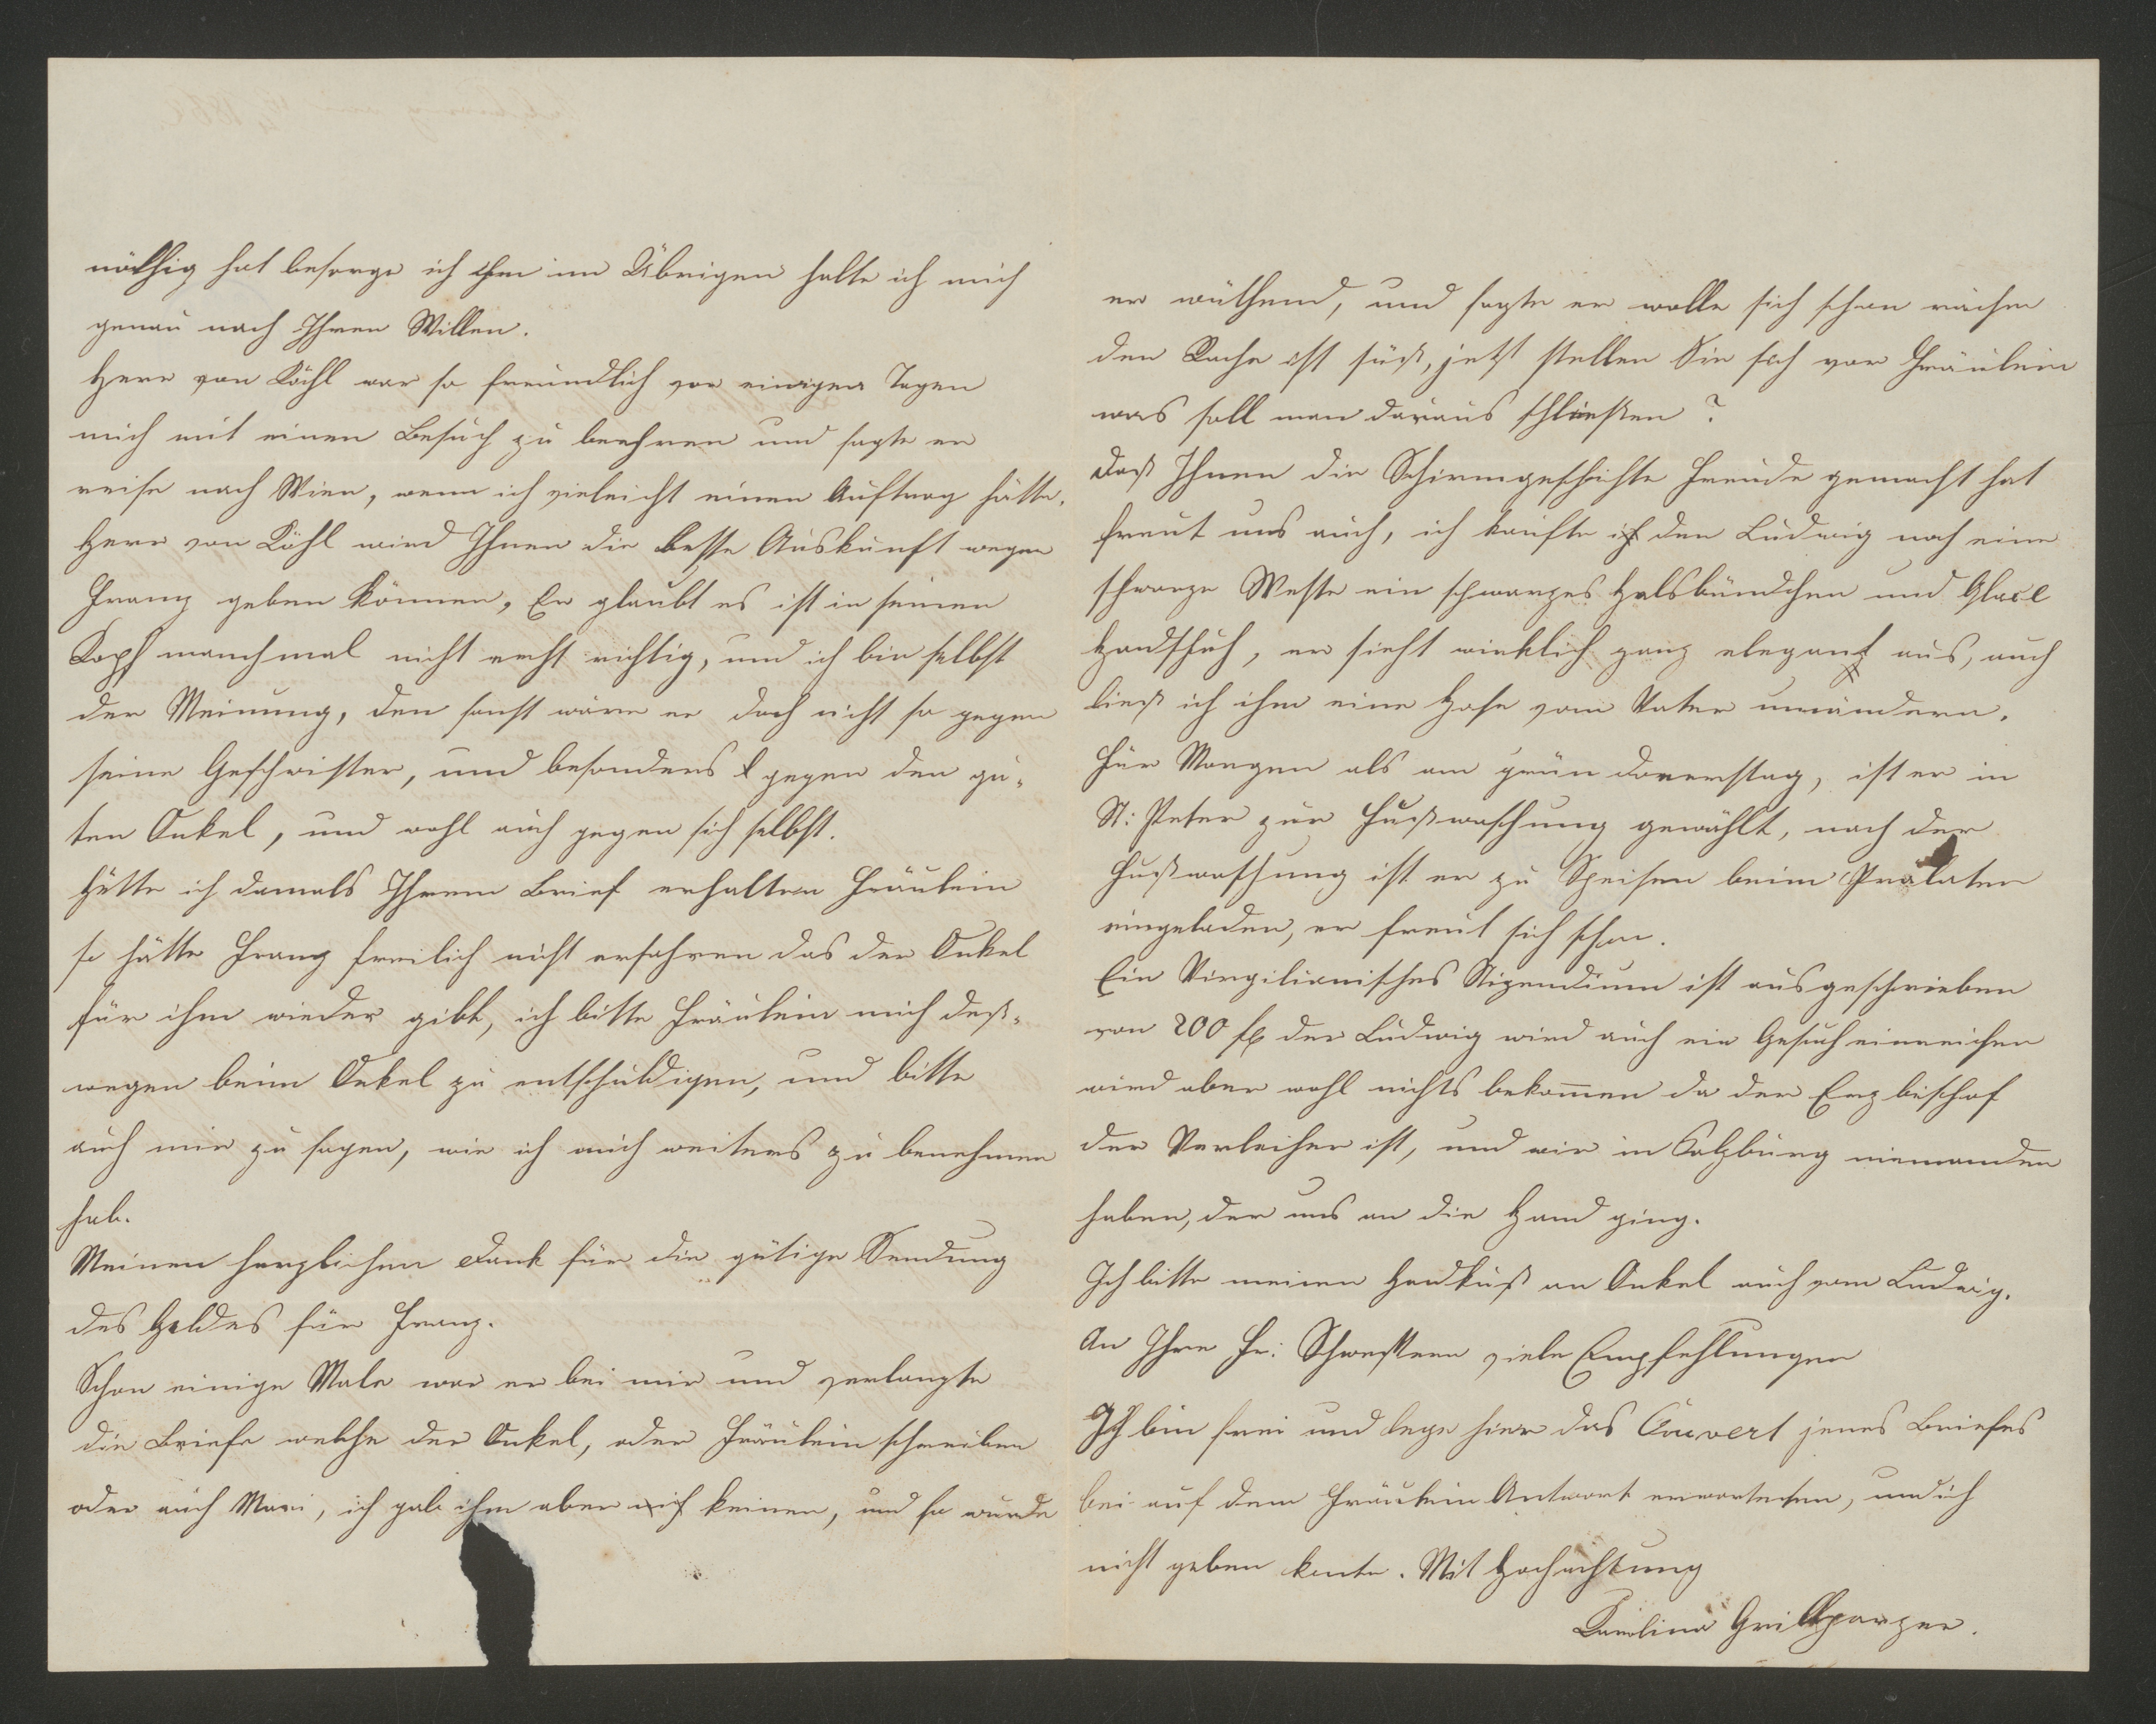 nöthig hat besorge ich ihm im Übrigen halte ich mich
genau nach Ihren Willen.
Herr von Köchl war so freundlich vor einigen Tagen
mich mit einen Besuch zu beehren und sagte er
reise nach Wien, wenn ich vieleicht einen Auftrag hätte.
Herr von Köchl wird Ihnen die besste Auskunft wegen
Franz geben können, Er glaubt es ist in seinen
Kopf manchmal nicht recht richtig, und ich bin selbst
der Meinung, den sonst wäre er doch nicht so gegen
seine Geschwister, und besonders gegen den gu-
ten Onkel, und wohl auch gegen sich selbst.
Hätte ich damals Ihrem Brief erhalten Fräulein
so hätte Franz freilich nicht erfahren das der Onkel
für ihm wieder gibt, ich bitte Fräulein mich deß-
wegen beim Onkel zu entschuldigen, und bitte
auch mir zu sagen, wie ich mich weiters zu benehmen
hab.
Meinen herzlichen Dank für die gütige Sendung
des Geldes für Franz.
Schon einige Male war er bei mir und verlangte
die Briefe welche der Onkel, oder Fräulein schreiben
oder auch Mari, ich gab ihm aber keinen, und so wurde
er wüthend, und sagte er wolle sich schon rächen
den Rache ist süß, jetzt stellen Sie sich vor Fräulein
was soll man daraus schließen?
Daß Ihnen die Schirmgeschichte Freude gemacht hat
freut uns auch, ich kaufte den Ludwig noch eine
schwarze Weste ein schwarzes Halsbündchen und Glacé
Handschuh, er sieht wirklich ganz elegant aus, auch
ließ ich ihm eine Hose vom Vater umändern.
Für Morgen als am grün donnerstag, ist er in
St: Peter zur Fußwaschung gewählt, nach der
Fußwaschung ist er zu Speisen beim Prälaten
eingeladen, er freut sich schon.
Ein Virgilianisches Stipendium ist ausgeschrieben
von 200 fl der Ludwig wird auch ein Gesuch einreichen
wird aber wohl nichts bekom̄en da der Erzbischof
der Verleiher ist, und wir in Salzburg niemanden
haben, der uns an die Hand ging.
Ich bitte meinen Handkuß an Onkel auch vom Ludwig.
An Ihre Fr: Schwestern viele Empfehlungen
Ich bin frei und lege hier das Couvert jenes Briefes
bei auf dem Fräulein Antwort erwarteten, und ich
nicht geben konte. Mit Hochachtung
Karolina Grillparzer.